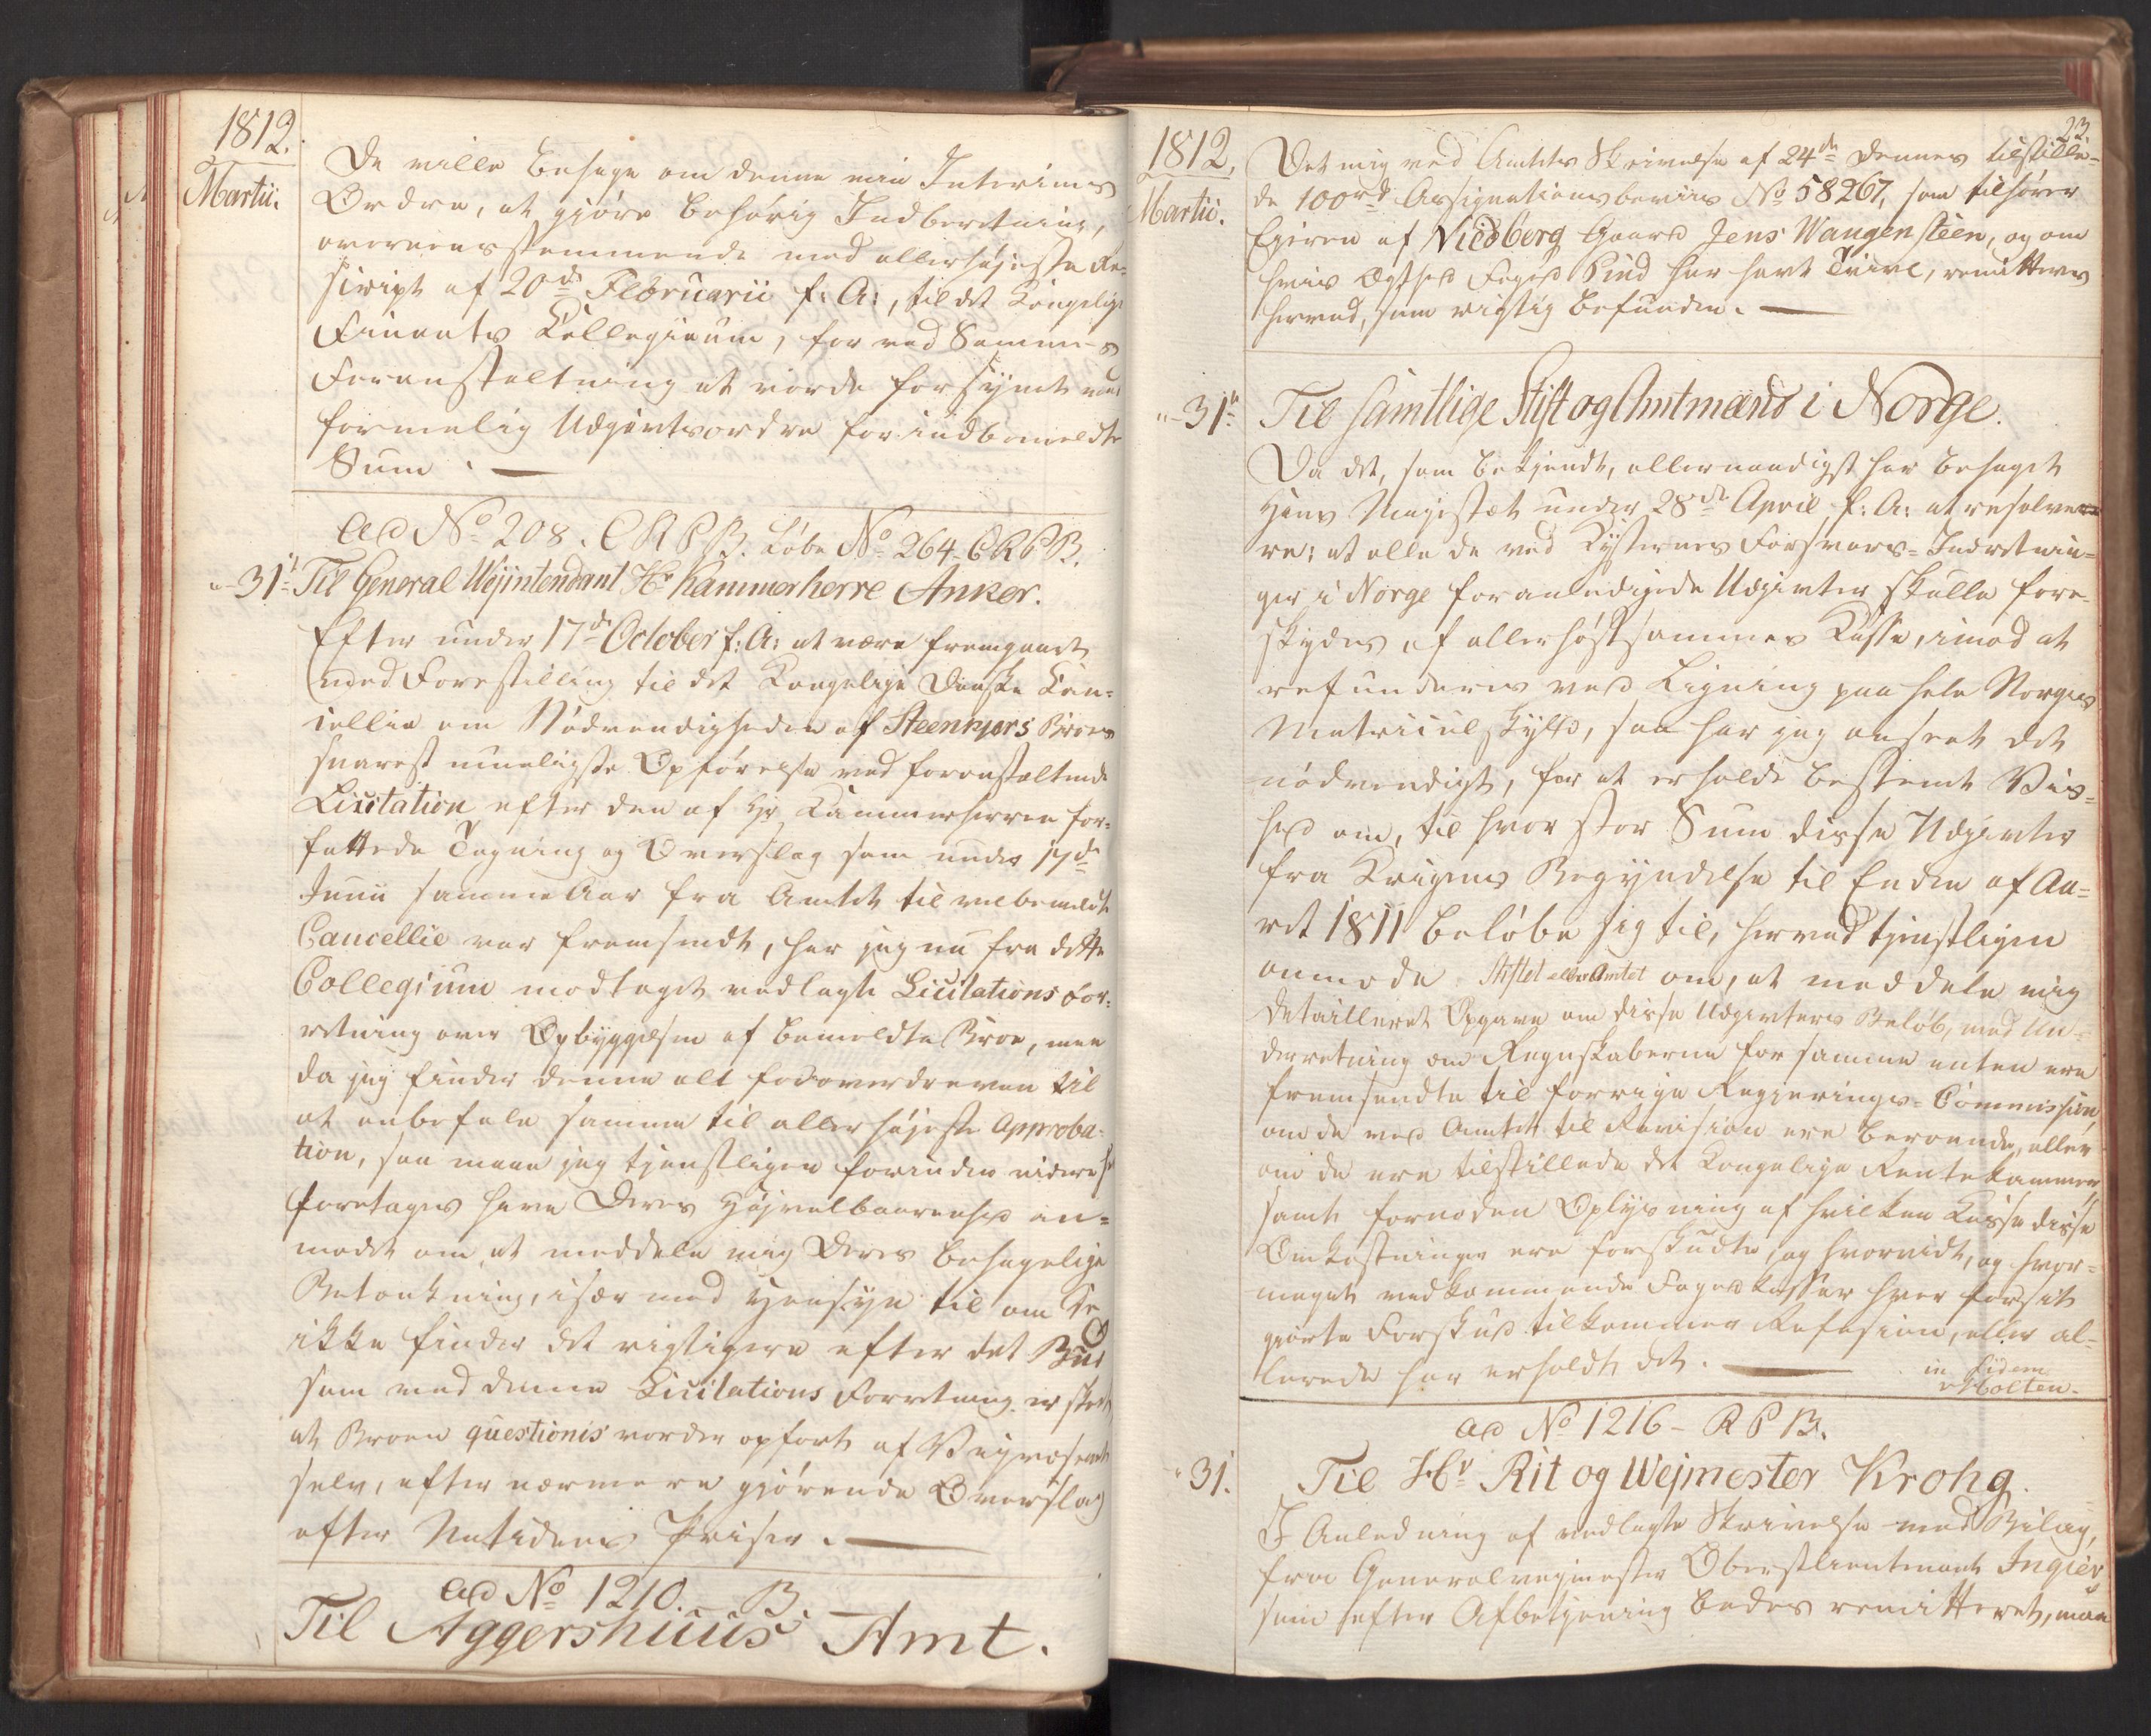 1812.
Martii.
De ville behage om denne min Interims
Ordre, at gjöre behörig Indberetning,
overeensstemmende med allerhöjeste Re-
script af 20de Februarii f: A:, til det Kongelige
Finants Collegium, for ved Sammes
Foranstaltning at vorde forsynet med
formelig Udgivtsordre for indbemeldte
Sum. —
Ad No 208. C R P B. Löbe No 264. C R P B.
"-31te Til General Wejintendant Hr Kammerherre Anker.
Efter under 17de October f: A: at være fremgaaet
med Forestilling til det Kongelige Danske Can-
cellie om Nödvendigheden af Steenkjers Broes
snarest mueligste Opförelse ved foranstaltende
Licitation efter den af Hr Kammerherren for-
fattede Tegning og Overslag som under 17de
Junii samme Aar fra Amtet til velbemeldte
Cancellie var fremsendt, har jeg nu fra dette
Collegium modtaget vedlagte Licitations For-
retning over Opbyggelsen af bemeldte Broe, men
da jeg finder denne alt for overdreven til
at anbefale samme til allerhöjeste Approba-
tion, saa maae jeg tjenstligen forinden videre
foretages have Deres Höjvelbaarenhed an-
modet om, at meddele mig Deres behagelige
Betænkning, især med Hensyn til om De
ikke finder det rigtigere efter det Bud
som med denne Licitations Forretning er skeet,
at Broen questionis vorder opfört af Vejvæsenet
selv, efter nærmere gjörende Overslag
efter Nutidens Priser. —
Ad No 1210. B.
Til Aggershuus Amt.
23.
1812.
Martii.
Det mig ved Amtets Skrivelse af 24de dennes tilstille-
de 100rd Assignationsbeviis No 58267, som tilhörer
Ejeren af Viedberg Gaard Jens Wangensteen, og om
hvis Ægthed Foged Pind har havt Tvivl, remitteres
herved, som rigtig befunden. —
"-31te Til samtlige Stift og Amtmænd i Norge.
Da det, som bekjendt, allernaadigst har behaget
Hans Majestæt under 28de April f: A: at resolve-
re; at alle de ved Kysternes Forsvars-Indretnin-
ger i Norge foranledigede Udgivter skulle fore-
skydes af allerhöstsammes Kasse, imod at
refunderes ved Ligning paa hele Norges
Matricul Skyld, saa har jeg anseet det
nödvendigt, for at erholde bestemt Vis-
hed om, til hvor stor Sum disse Udgivter
fra Krigens Begyndelse til Enden af Aa-
ret 1811 belöbe sig til, herved tjenstligen
anmode Stiftet eller Amtet om, at meddele mig
detailleret Opgave om disse Udgivters Belöb, med Un-
derretning om Regnskaberne for samme enten ere
fremsendte til forrige Regjerings-Commission,
om de ved Amtet til Revision ere beroende, eller
om de ere tilstillede det Kongelige Rentekammer,
samt fornöden Oplysning af hvilken Kasse disse
Omkostninger ere forskudte, og hvorvidt, og hvor-
meget vedkommende Foged Kasser hver for sit
gjorte Forskud tilkommer Refusion, eller al-
lerede har erholdt det. —
in fidem
Molten.
Ad No 1216 - R P B.
"31. Til Hr Rit og Wejmester Krohg.
I Anledning af vedlagte Skrivelse med Bilag,
fra Generalvejmester Oberstlieutenant Ingier
som efter Afbetjening bedes remitteret, maa